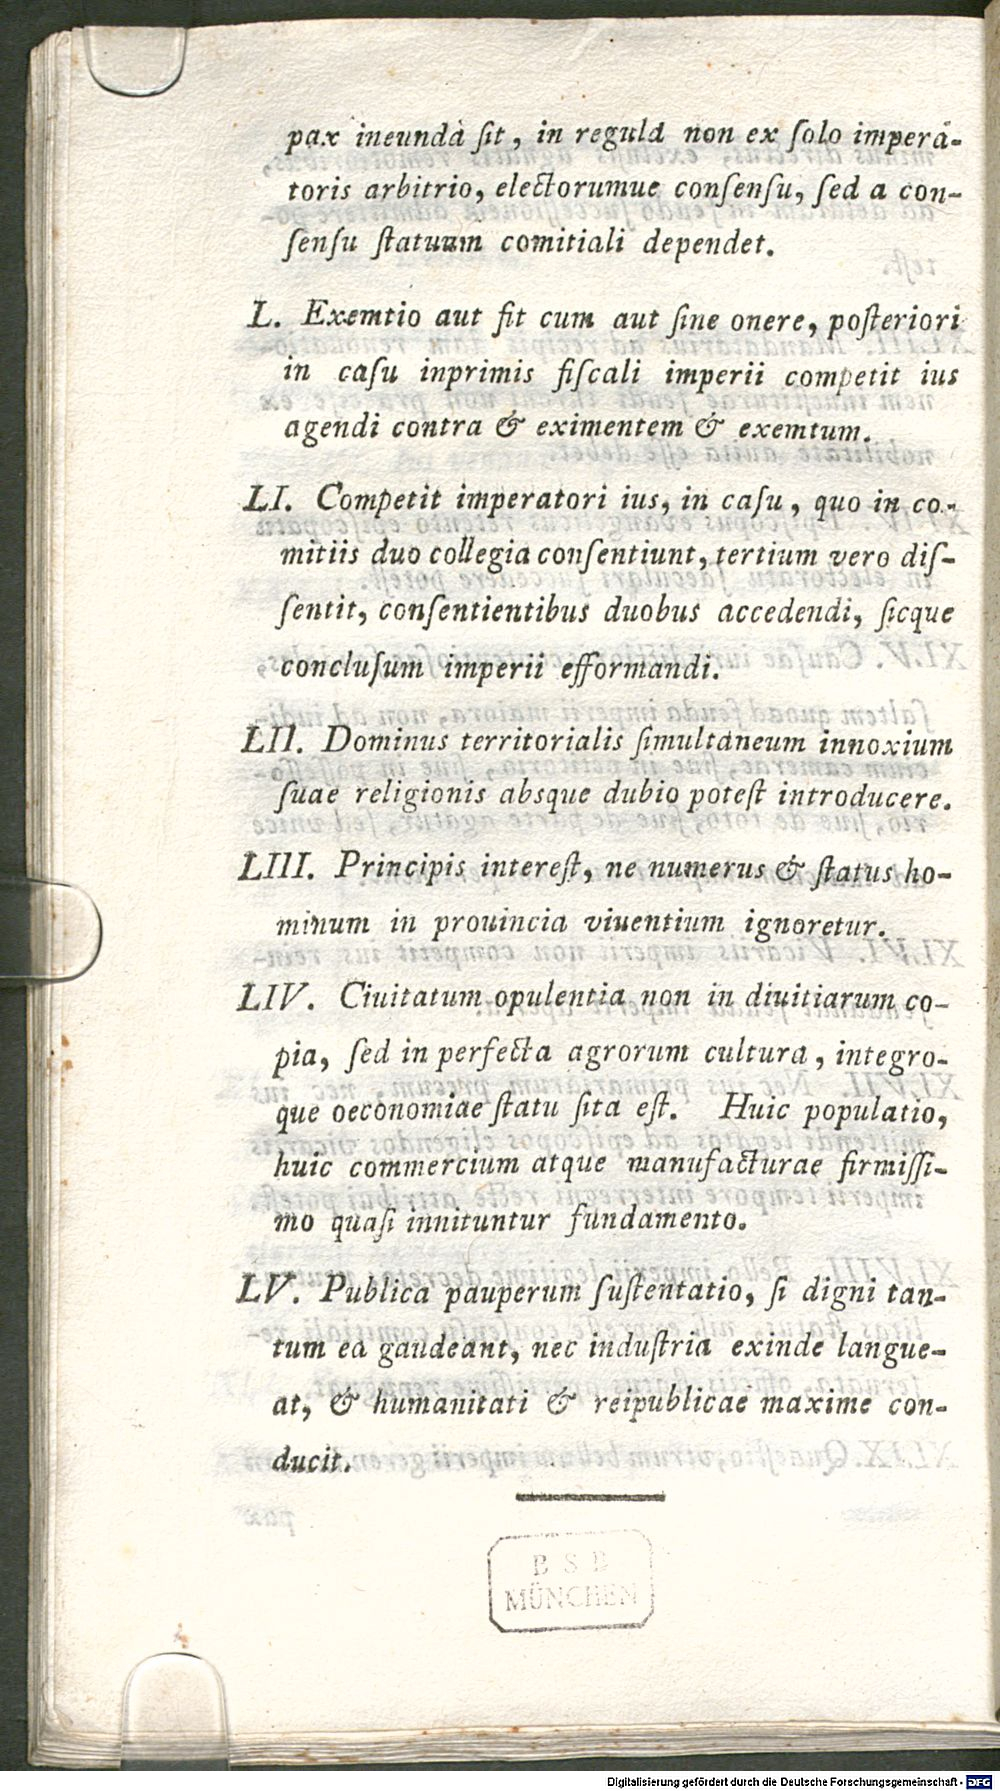 pax ineunda ſit, in regula non ex ſolo impera-
toris arbitrio, electorumue conſenſu, ſed a con-
ſenſu ſtatuum comitiali dependet.
L. Exemtio aut fit cum aut ſine onere, poſteriori
in caſu inprimis fiſcali imperii competit ius
agendi contra & eximentem & exemtum.
LI. Competit imperatori ius, in caſu, quo in co-
mitiis duo collegia conſentiunt, tertium vero diſ-
ſentit, conſentientibus duobus accedendi, ſicque
concluſum imperii efformandi.
LII. Dominus territorialis ſimultaneum innoxium
ſuae religionis absque dubio poteſt introducere.
LIII. Principis intereſt, ne numerus & ſtatus ho-
minum in prouincia viuentium ignoretur.
LIV. Ciuitatum opulentia non in diuitiarum co-
pia, ſed in perfecta agrorum cultura, integro-
que oeconomiae ſtatu ſita eſt. Huic populatio,
huic commercium atque manufacturae firmiſſi-
mo quaſi innituntur fundamento.
LV. Publica pauperum ſuſtentatio, ſi digni tan-
tum ea gaudeant, nec induſtria exinde langue-
at, & humanitati & reipublicae maxime con-
ducit.
B S B
MÜNCHEN
Digitalisierung gefördert durch die Deutsche Forschungsgemeinschaft - DFG